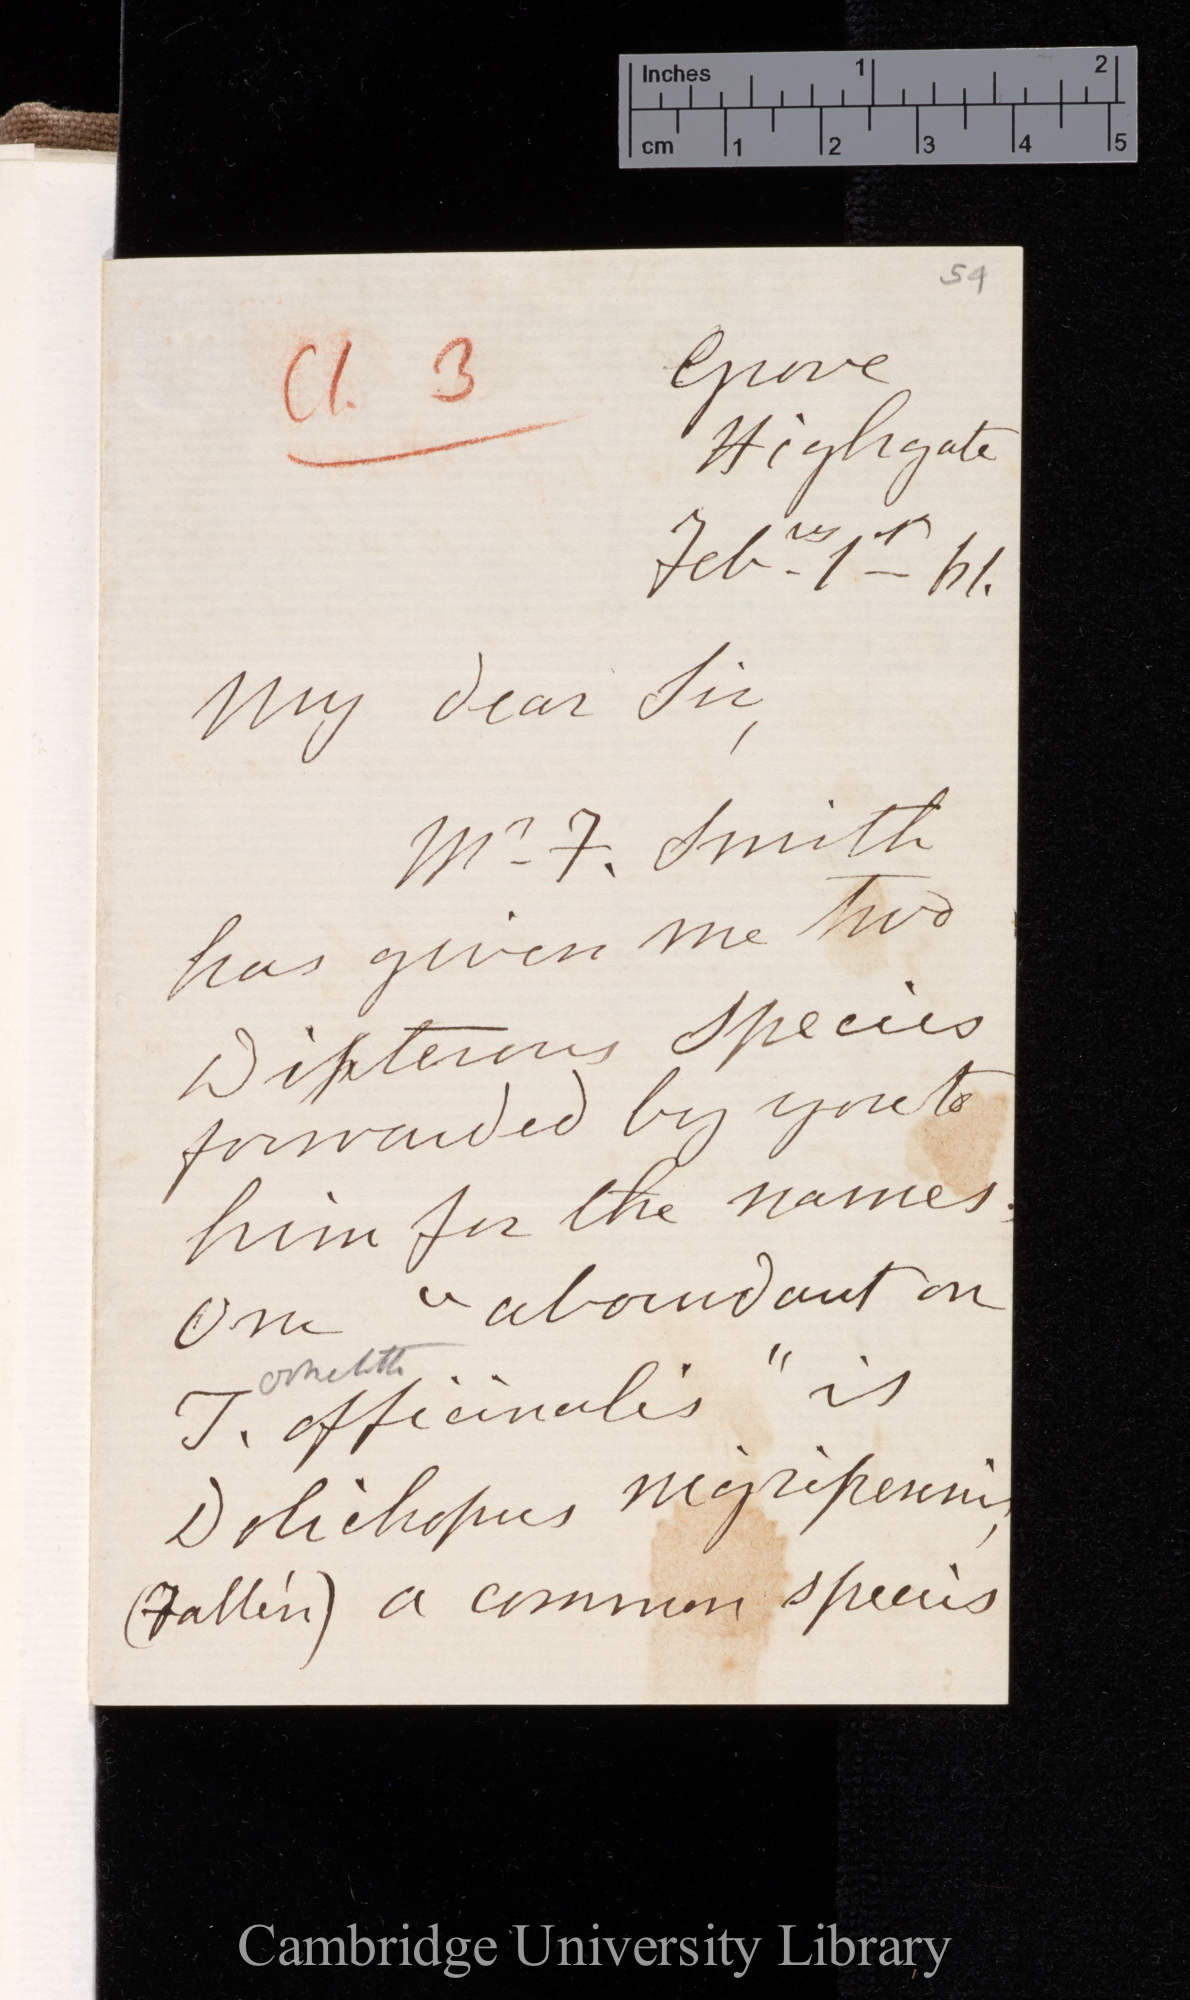 Inches 1 2
cm 1 2 3 4 5
54
Ch 3
Grove
Highgate
Feb.ry 1st 61.
My dear Sir,
Mr. F. Smith
has given me two
Dipterous species
forwarded by you to
him for the names.
One "abundant on
T. officinalis" is
Dolichopus nigripennis,
(Fallén) a common species
Cambridge University Library